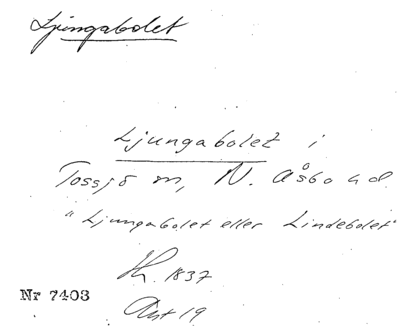 Ljungabolet
Ljungabolet i
Tossjö sn, N. Åsbo hd
"Ljungabolet eller Lindebolet"
1837
Nr 7403
Akt 19